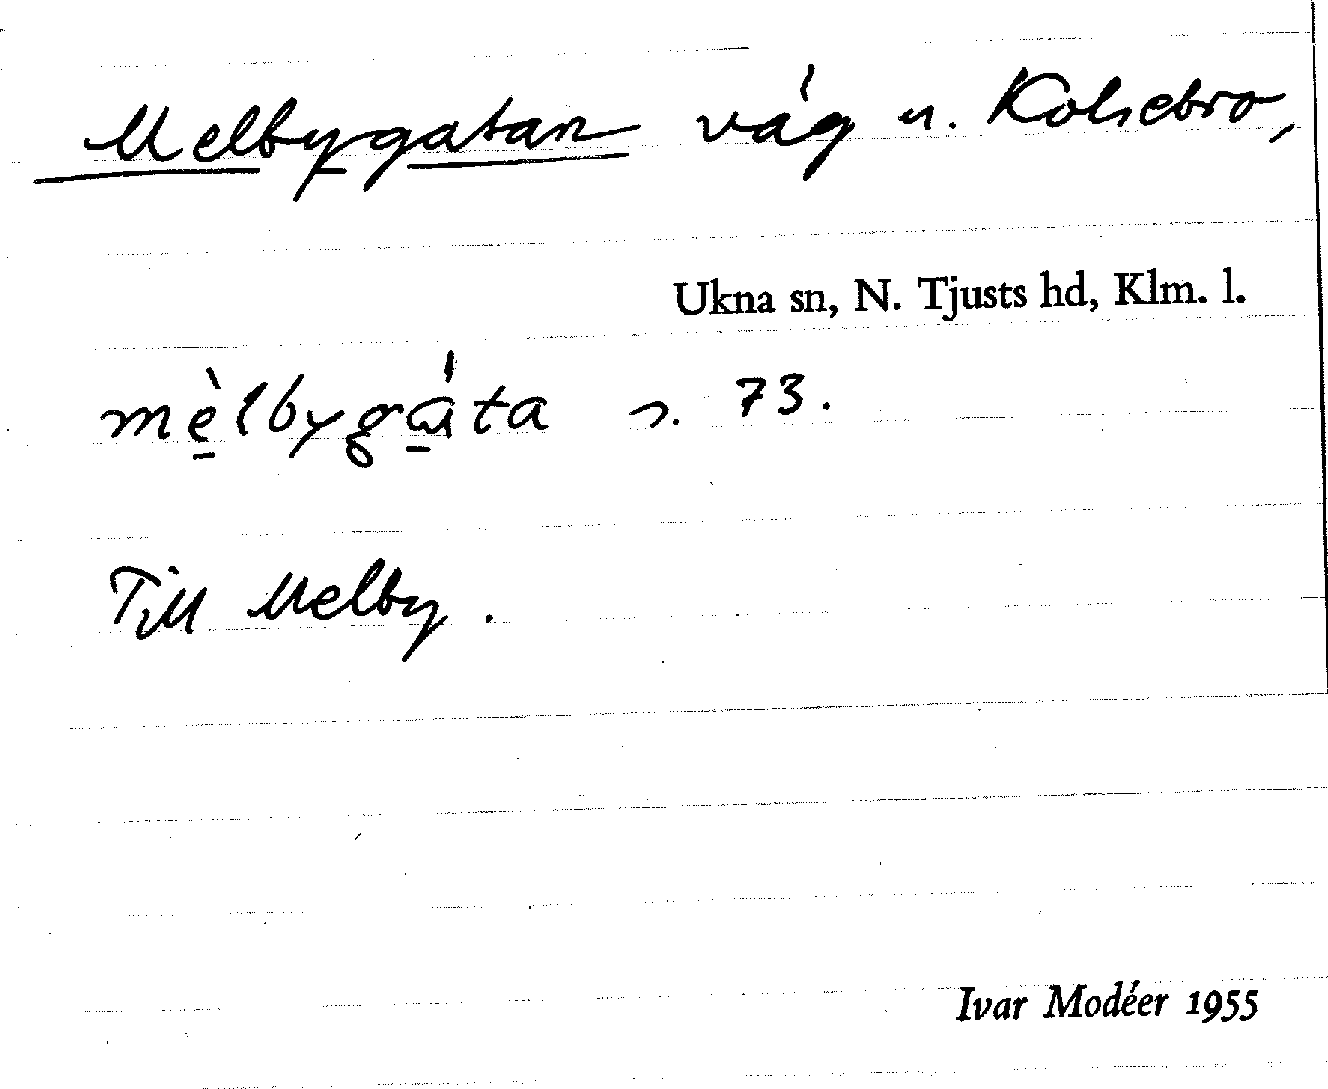 Melbygatan väg u. Kolsebro,
Ukna sn, N. Tjusts hd, Klm. l.
mèlbygáta s. 73.
Till Melby.
Ivar Modéer 1955